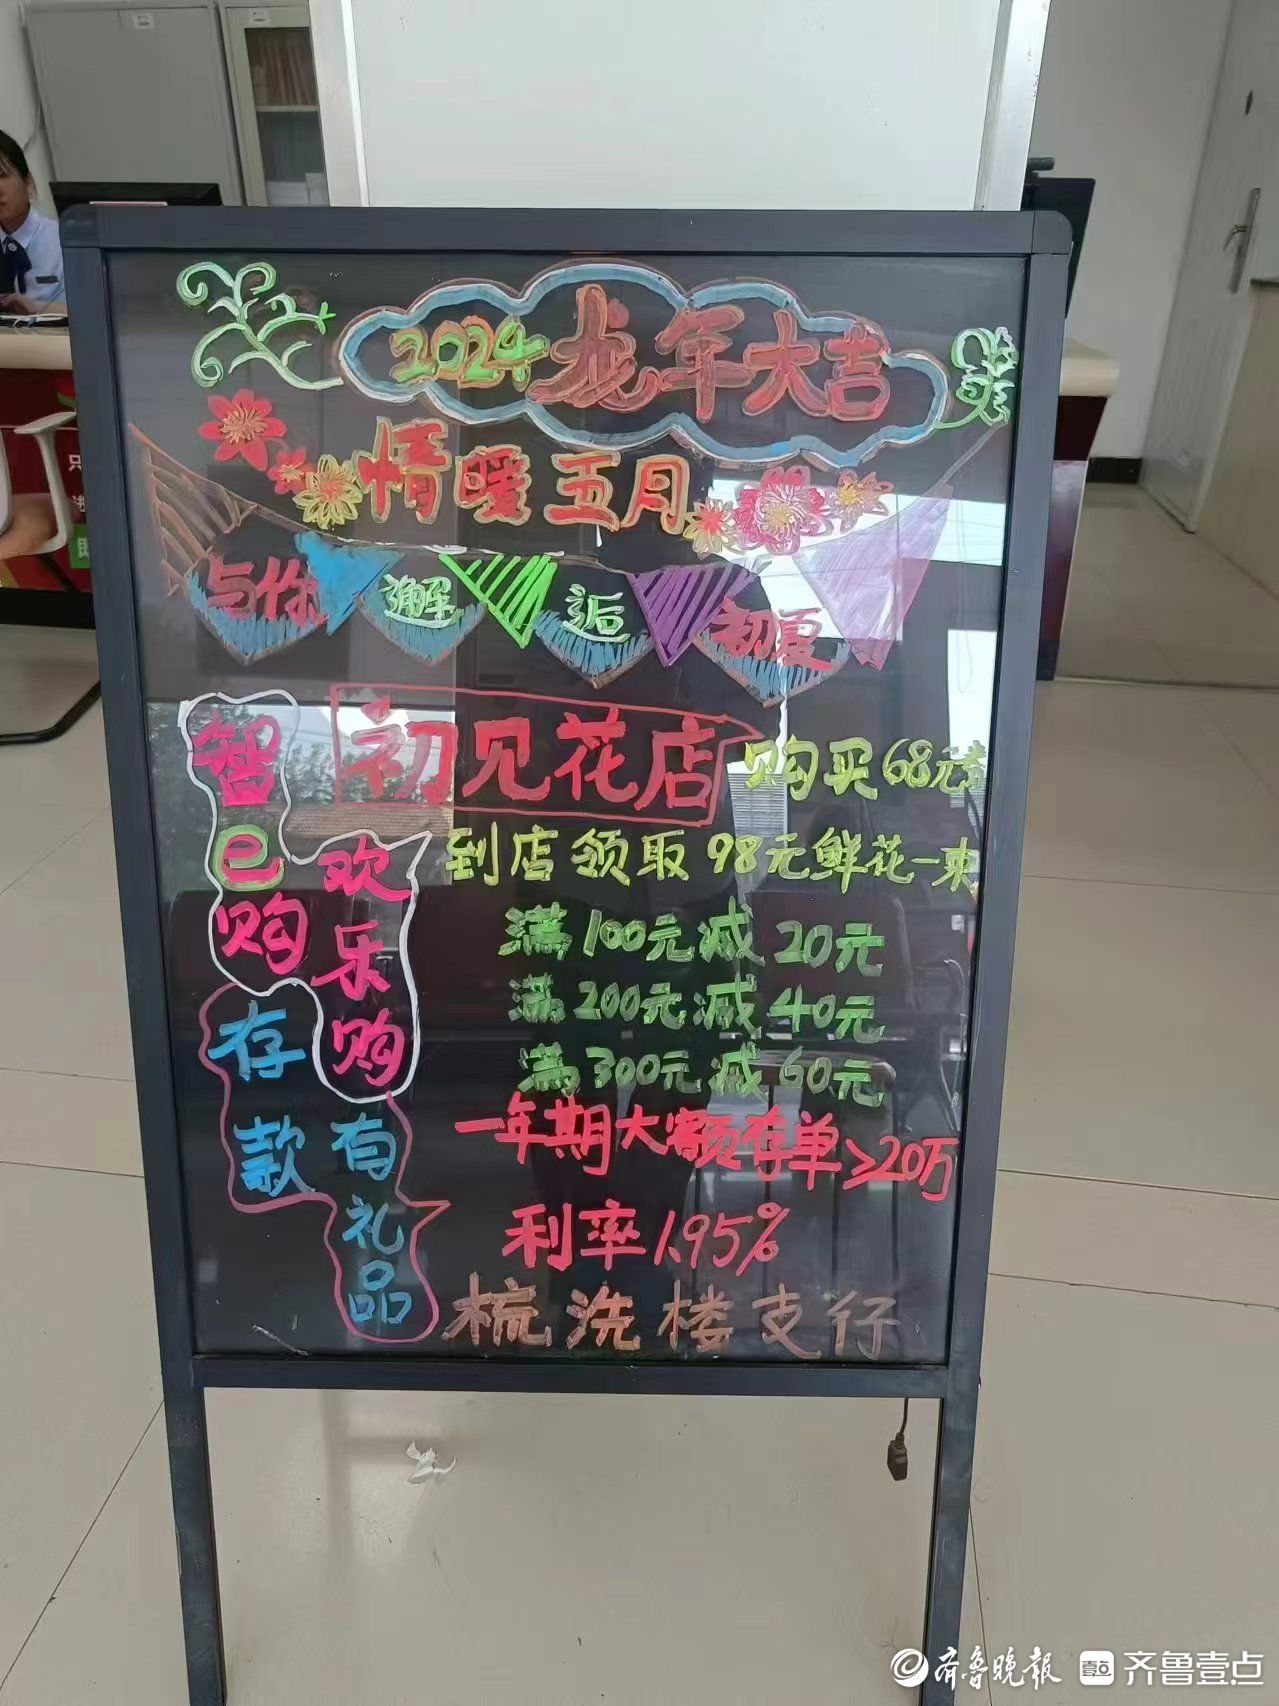 2024龙年大吉
情暖五月
与你邂逅初夏
智e购
欢乐购
存款
有礼品
初见花店
购买68元券
到店领取98元鲜花一束
满100元减20元
满200元减40元
满300元减60元
一年期大额存单≥20万
利率1.95%
梳洗楼支行
齐鲁晚报
壹点
齐鲁壹点